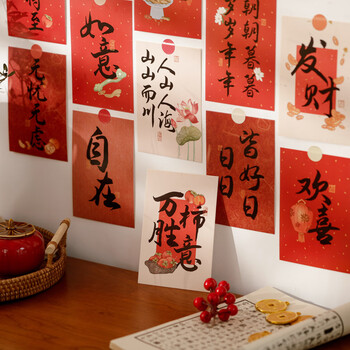 至
如意
人山人海
山山而川
朝朝暮暮
岁岁年年
发财
无忧无虑
自在
日日
皆好日
欢喜
万柿
胜意